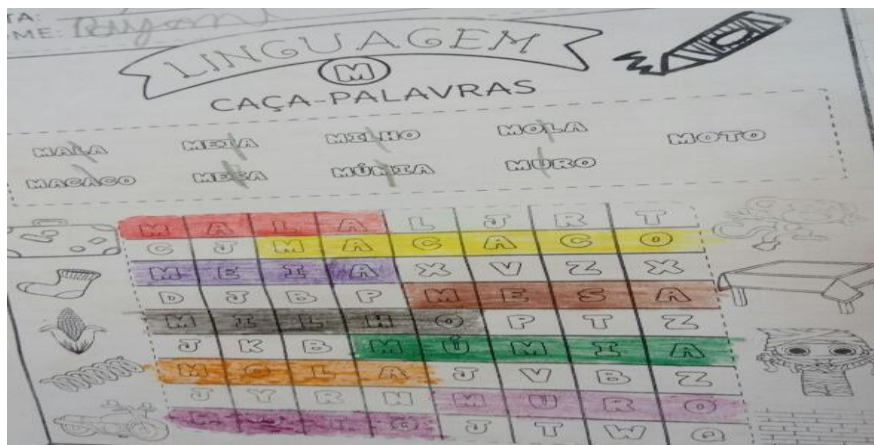 TA:
ME: Bryan
LINGUAGEM
M
CAÇA-PALAVRAS
MALA MEIA MILHO MOLA MOTO
MACACO MESA MÚMIA MURO
M A L A L J R T
C J M A C A C O
M E I A X V Z X
D J B P M E S A
M I L H O P T Z
J K B M Ú M I A
M O L A J V B Z
J Y R N M U R O
M O T O J T W Q